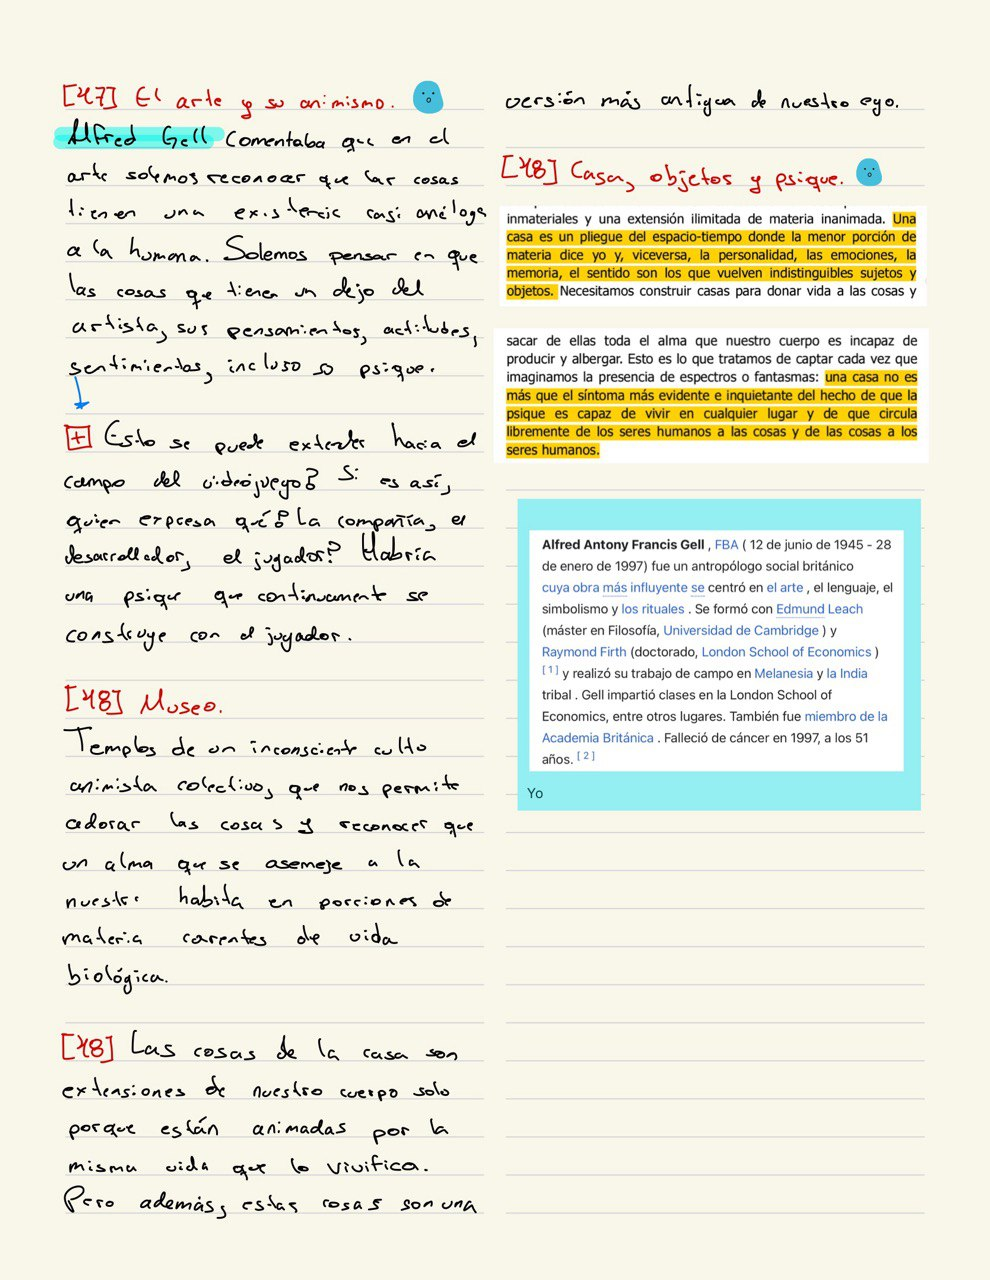 [47] El arte y su animismo.
Alfred Gell comentaba que en el
arte solemos reconocer que las cosas
tienen una existencia casi análoga
a la humana. Solemos pensar en que
las cosas que tienen un dejo del
artista, sus pensamientos, actitudes,
sentimientos, incluso su psique.
+ Esto se puede extender hacia el
campo del videojuego? Si es así,
quien expresa qué? La compañía, el
desarrollador, el jugador? Habría
una psique que continuamente se
construye con el jugador.
[48] Museo.
Templos de un inconsciente culto
animista colectivo, que nos permite
adorar las cosas y reconocer que
un alma que se asemeje a la
nuestra habita en porciones de
materia carentes de vida
biológica.
[48] Las cosas de la casa son
extensiones de nuestro cuerpo solo
porque están animadas por la
misma vida que lo vivifica.
Pero además, estas cosas son una
versión más antigua de nuestro ego.
[48] Casa, objetos y psique.
inmateriales y una extensión ilimitada de materia inanimada. Una
casa es un pliegue del espacio-tiempo donde la menor porción de
materia dice yo y, viceversa, la personalidad, las emociones, la
memoria, el sentido son los que vuelven indistinguibles sujetos y
objetos. Necesitamos construir casas para donar vida a las cosas y
sacar de ellas toda el alma que nuestro cuerpo es incapaz de
producir y albergar. Esto es lo que tratamos de captar cada vez que
imaginamos la presencia de espectros o fantasmas: una casa no es
más que el síntoma más evidente e inquietante del hecho de que la
psique es capaz de vivir en cualquier lugar y de que circula
libremente de los seres humanos a las cosas y de las cosas a los
seres humanos.
Alfred Antony Francis Gell , FBA ( 12 de junio de 1945 - 28
de enero de 1997) fue un antropólogo social británico
cuya obra más influyente se centró en el arte , el lenguaje, el
simbolismo y los rituales . Se formó con Edmund Leach
(máster en Filosofía, Universidad de Cambridge ) y
Raymond Firth (doctorado, London School of Economics )
[ 1 ] y realizó su trabajo de campo en Melanesia y la India
tribal . Gell impartió clases en la London School of
Economics, entre otros lugares. También fue miembro de la
Academia Británica . Falleció de cáncer en 1997, a los 51
años. [ 2 ]
Yo